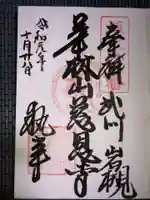 奉拝 武州 岩槻
華林山慈恩寺
令和元年
十月廿八日
執事